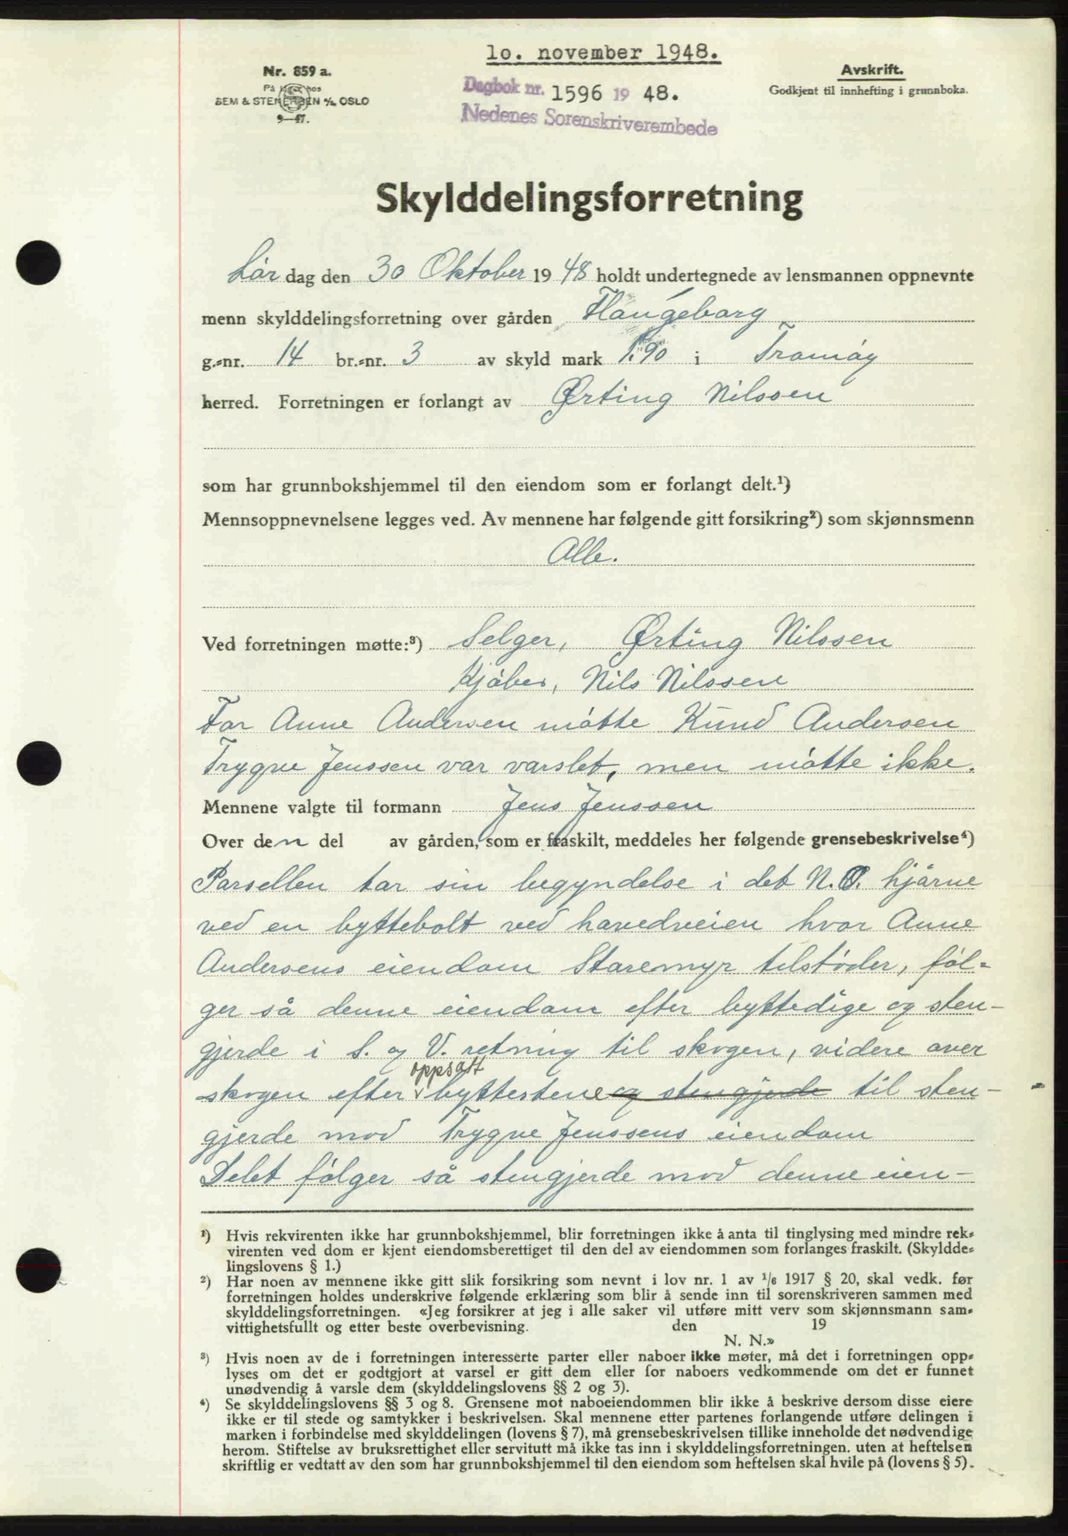 10. november 1948.
Nr. 859 a.
På lager hos
SEM & STENERSEN A/S OSLO
9—47.
Dagbok nr. 1596 19 48.
Nedenes Sorenskriverembede
Avskrift.
Godkjent til innhefting i grunnboka.
Skylddelingsforretning
Lør dag den 30 Oktober 19 48 holdt undertegnede av lensmannen oppnevnte
menn skylddelingsforretning over gården Hangeborg
g.-nr. 14 br.-nr. 3 av skyld mark 1.90 i Tromøy
herred. Forretningen er forlangt av Ørting Nilssen
som har grunnbokshjemmel til den eiendom som er forlangt delt.¹)
Mennsoppnevnelsene legges ved. Av mennene har følgende gitt forsikring²) som skjønnsmenn
Alle.
Ved forretningen møtte:³) Selger, Ørting Nilssen
Kjøber, Nils Nilssen
For Anne Andersen møtte Knud Andersen
Trygve Jenssen var varslet, men møtte ikke.
Mennene valgte til formann Jens Jenssen
Over den del av gården, som er fraskilt, meddeles her følgende grensebeskrivelse⁴)
Parsellen tar sin begyndelse i det N.O. hjørne
ved en byttebolt ved hovedveien hvor Anne
Andersens eiendom Staremyr tilstøder, føl-
ger så denne eiendom efter byttedige og sten-
gjerde i S. og V. retning til skogen, videre over
skogen efter oppsatt byttestene og stengjerde til sten-
gjerde mod Trygve Jenssens eiendom
Delet følger så stengjerde mod denne eien-
¹) Hvis rekvirenten ikke har grunnbokshjemmel, blir forretningen ikke å anta til tinglysing med mindre rek-
virenten ved dom er kjent eiendomsberettiget til den del av eiendommen som forlanges fraskilt. (Skyldde-
lingslovens § 1.)
²) Har noen av mennene ikke gitt slik forsikring som nevnt i lov nr. 1 av 1/6 1917 § 20, skal vedk. før
forretningen holdes underskrive følgende erklæring som blir å sende inn til sorenskriveren sammen med
skylddelingsforretningen. «Jeg forsikrer at jeg i alle saker vil utføre mitt verv som skjønnsmann sam-
vittighetsfullt og etter beste overbevisning. den 19
N. N.»
³) Hvis noen av de i forretningen interesserte parter eller naboer ikke møter, må det i forretningen opp-
lyses om det er godtgjort at varsel er gitt dem eller for naboers vedkommende om det er funnet
unødvendig å varsle dem (skylddelingslovens §§ 2 og 3).
⁴) Se skylddelingslovens §§ 3 og 8. Grensene mot naboeiendommen blir ikke å beskrive dersom disse eiere
ikke er til stede og samtykker i beskrivelsen. Skal mennene etter partenes forlangende utføre delingen i
marken i forbindelse med skylddelingen (lovens § 7), må grensebeskrivelsen tillike inneholde det nødvendige
herom. Stiftelse av bruksrettighet eller servitutt må ikke tas inn i skylddelingsforretningen. uten at heftelsen
skriftlig er vedtatt av den som har grunnbokshjemmel til den eiendom som heftelsen skal hvile på (lovens § 5).